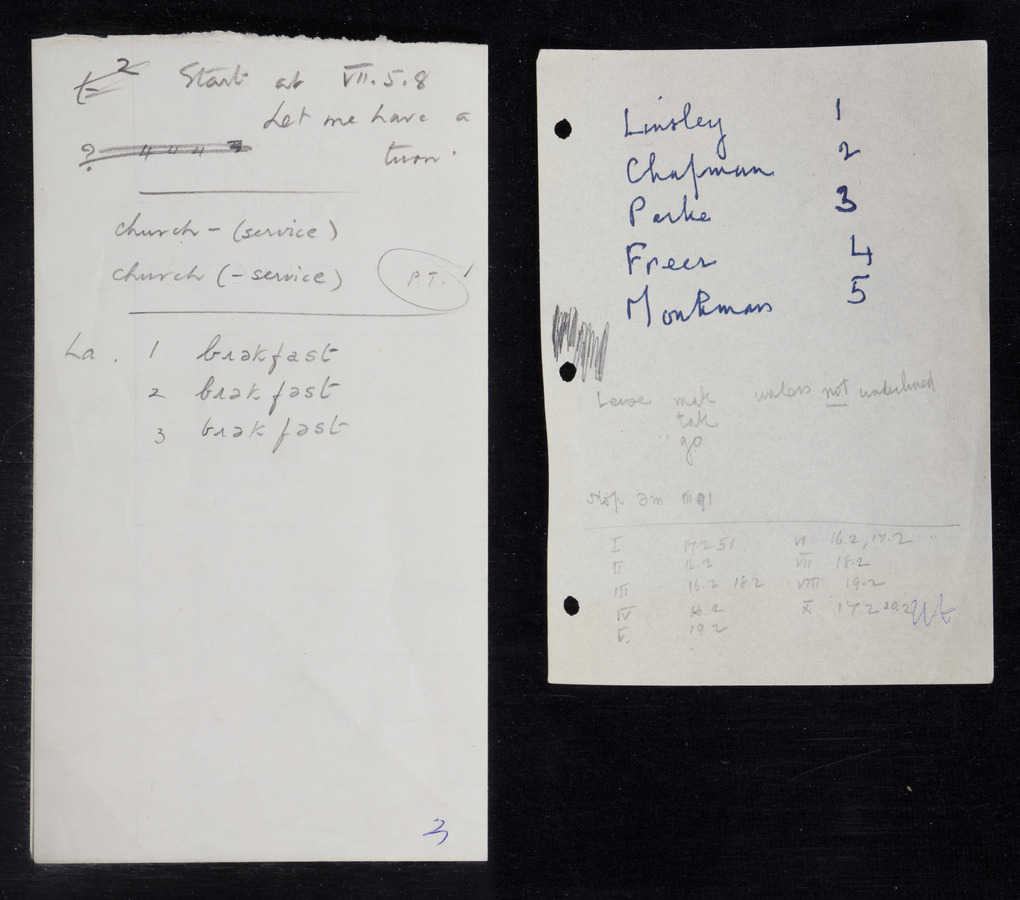 2 Start at VII.5.8
Let me have a
turn.
church - (service)
church (- service)
P.T.
La. 1 brɛkfast
2 brɛkfəst
3 brɛkfəst
3
Linsley 1
Chapman 2
Parke 3
Freer 4
Monkman 5
Leave mak unless not underlined
tak
" go
stop
I 17.2 51 VI 16.2, 17.2
II 16.2 VII 18.2
III 16.2 18.2 VIII 19.2
IV 16.2 X 17.2 20.2
V. 19.2